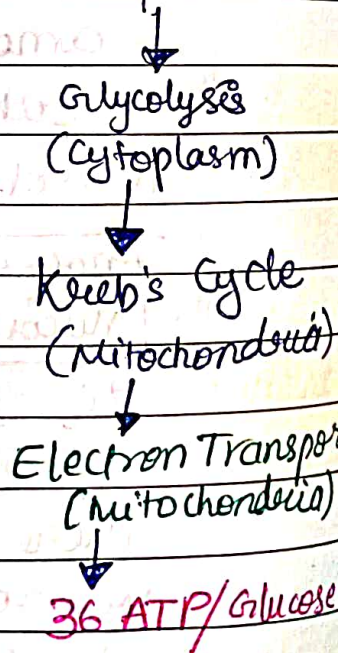 Glycolysis
(Cytoplasm)
Kreb's Cycle
(Mitochondria)
Electron Transpor
(Mitochondria)
36 ATP/Glucose